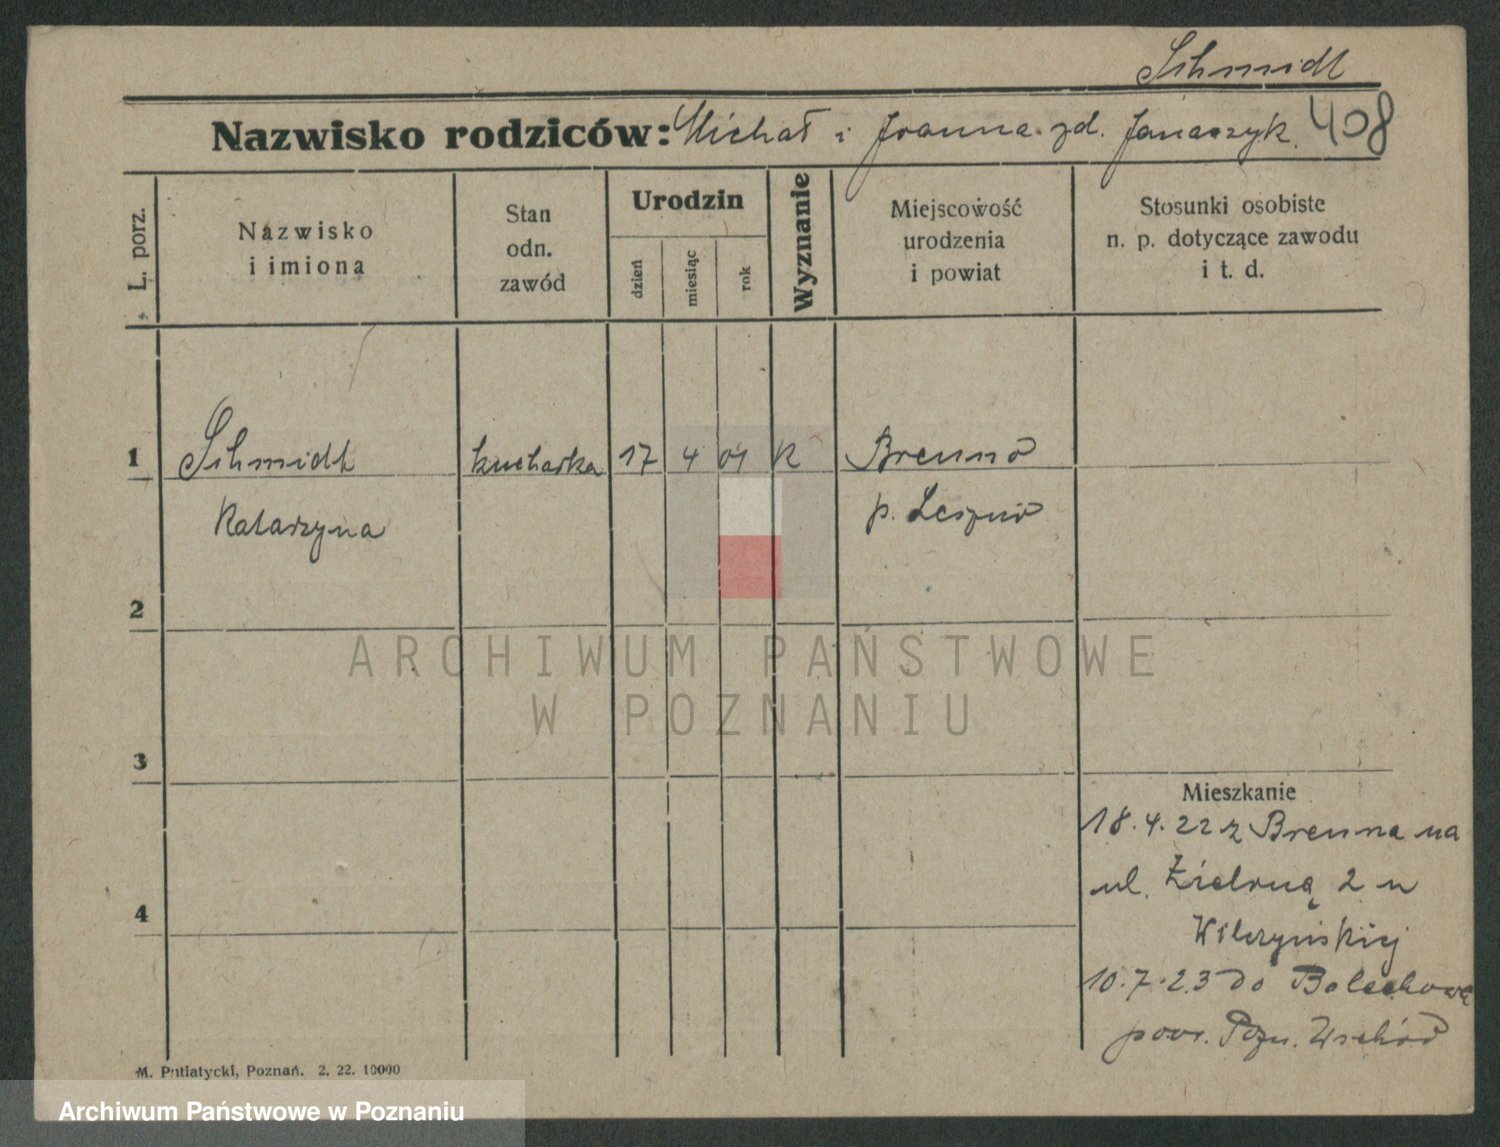 Schmidt
Nazwisko rodziców: Michał i Joanna zd. Janaszyk. 408
L. porz.
Nazwisko
i imiona
Stan
odn.
zawód
Urodzin
dzień
miesiąc
rok
Wyznanie
Miejscowość
urodzenia
i powiat
Stosunki osobiste
n. p. dotyczące zawodu
i t. d.
1 Schmidt kucharka 17 4 04 K Brenno
Katarzyna p. Leszno
2
ARCHIWUM PAŃSTWOWE
W POZNANIU
3
Mieszkanie
18.4.22 z Brenna na
ul. Zieloną 2 u
4
Wilczyńskiej
10.7.23 do Bolechowa
pow. Pozn. Wschód
M. Putiatycki, Poznań. 2. 22. 10000
Archiwum Państwowe w Poznaniu